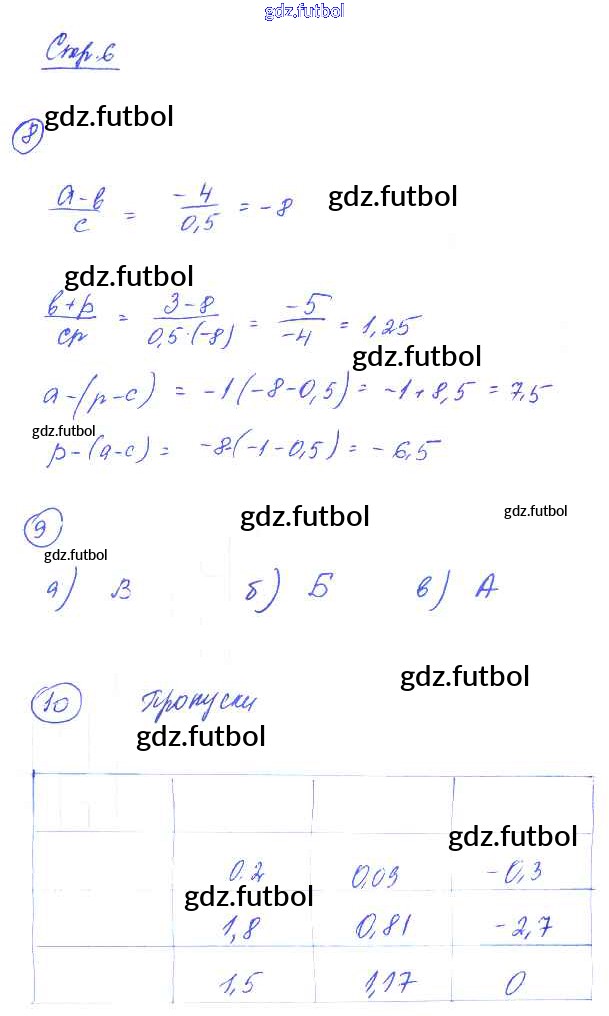 gdz.futbol
Стр. 6
gdz.futbol
8
(a-b)/c = -4/0,5 = -8
gdz.futbol
gdz.futbol
(b+p)/cp = (3-8)/(0,5·(-8)) = -5/-4 = 1,25
gdz.futbol
a-(p-c) = -1(-8-0,5) = -1+8,5 = 7,5
gdz.futbol
p-(a-c) = -8-(-1-0,5) = -6,5
gdz.futbol gdz.futbol
9
gdz.futbol
а) В б) Б в) А
gdz.futbol
10 Пропуски
gdz.futbol
gdz.futbol
0.2 0,03 -0,3
gdz.futbol
1,8 0,81 -2,7
1,5 1,17 0